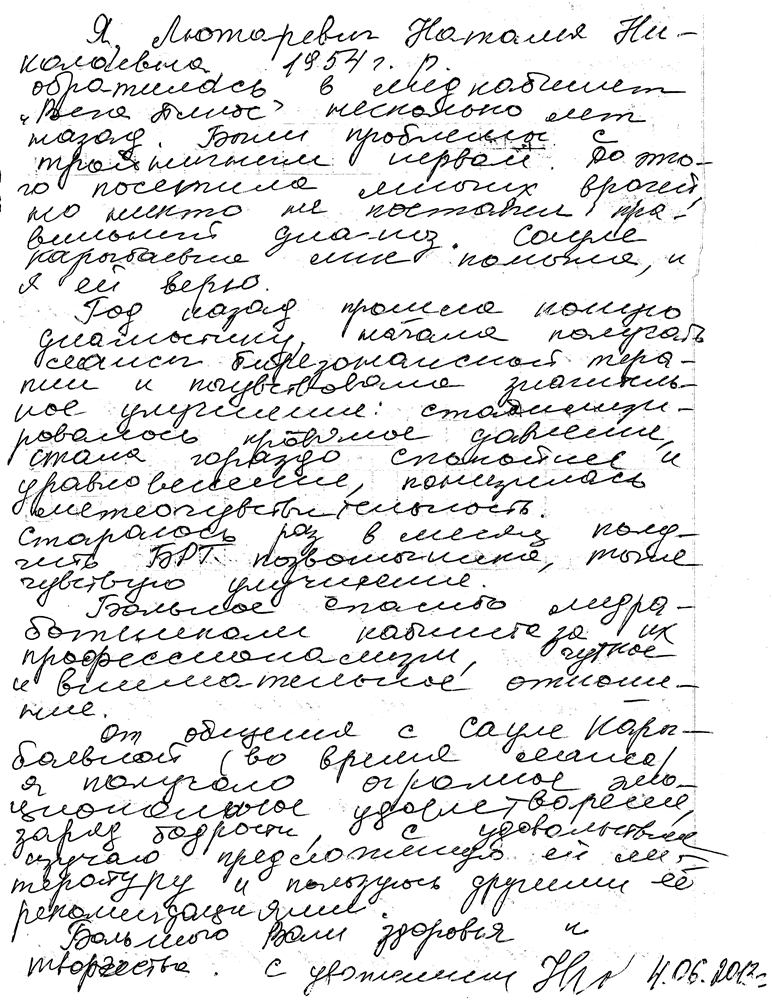 Я, Лютаревич Наталия Ни-
колаевна 1954 г. р.
обратилась в медкабинет
"Вега Плюс" несколько лет
назад. Были проблемы с
тройничным нервом. До это-
го посетила многих врачей,
но никто не поставил пра-
вильный диагноз. Сауле
Карыбаевна мне помогла, и
я ей верю.
Год назад прошла полную
диагностику, начала получать
сеансы биорезонансной тера-
пии и почувствовала значитель-
ное улучшение: стабилизи-
ровалось кровяное давление,
стала гораздо спокойнее и
уравновешение, понизилась
метеочувствительность.
Стараюсь раз в месяц полу-
чить БРТ позвоночника, тоже
чувствую улучшение.
Большое спасибо медра-
ботникам кабинета за их
профессионализм, чуткое
и внимательное отноше-
ние.
От общения с Сауле Кары-
баевной (во время сеанса)
я получаю огромное эмо-
циональное удовлетворение,
заряд бодрости, с удовольствием
изучаю предложенную ей ли-
тературу и пользуюсь другими её
рекомендациями.
Большого Вам здоровья и
творчества. С уважением 4.06.2012г.